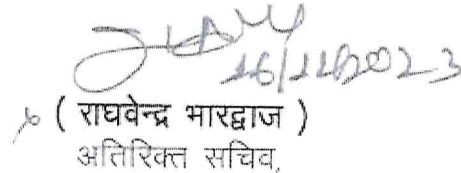 16/11/2023
( राघवेन्द्र भारद्वाज )
अतिरिक्त सचिव,